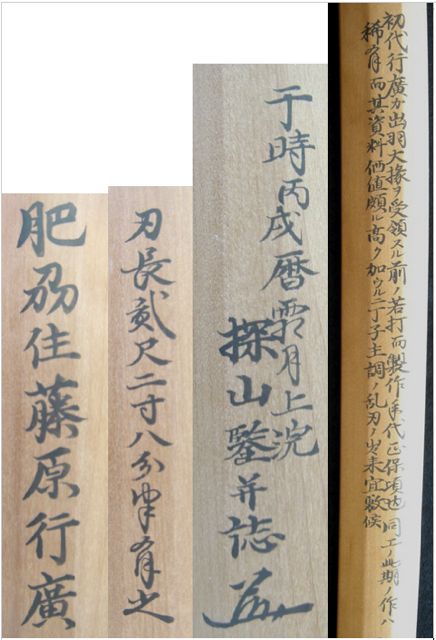 初代行廣カ出羽大掾ヲ受領スル前ノ若打而製作年代正保頃也 同工ノ此期ノ作ハ
稀有而其資料価値頗ル高ク加ウルニ丁子主調ノ乱刃ノ出来宜敷候
于時丙戌暦霜月上浣
探山鑒并誌
刃長貳尺二寸八分半有之
肥刕住藤原行廣